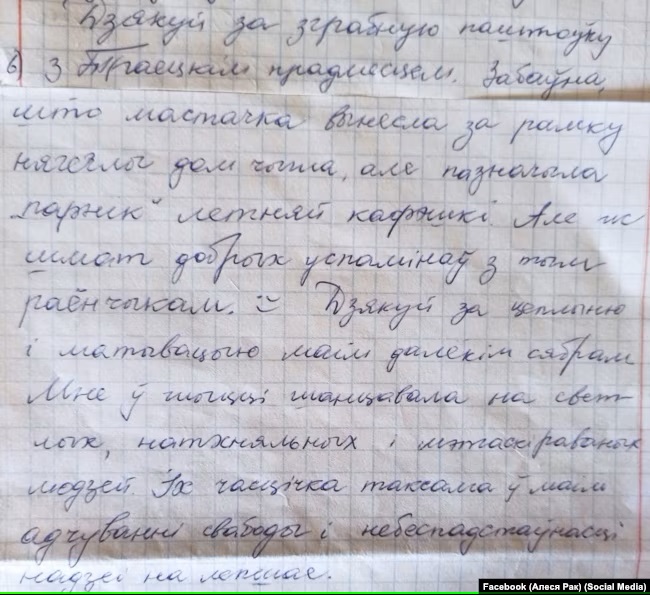 Дзякуй за зграбную паштоўку
з Траецкім прадмесцем. Забаўна,
што мастачка вынесла за рамку
нягеглы дом чыта, але пазначыла
„парнік“ летняй кафэшкі. Але ж
шмат добрых успамінаў з тым
раёнчыкам. Дзякуй за цеплыню
і матывацыю маім далёкім сябрам
Мне ў жыцці шанцавала на свет-
лых, натхняльных і
людзей. Іх часцічка таксама ў маім
адчуванні свабоды і небеспадстаўнасці
надзеі на лепшае.
Facebook (Алеся Рак) (Social Media)